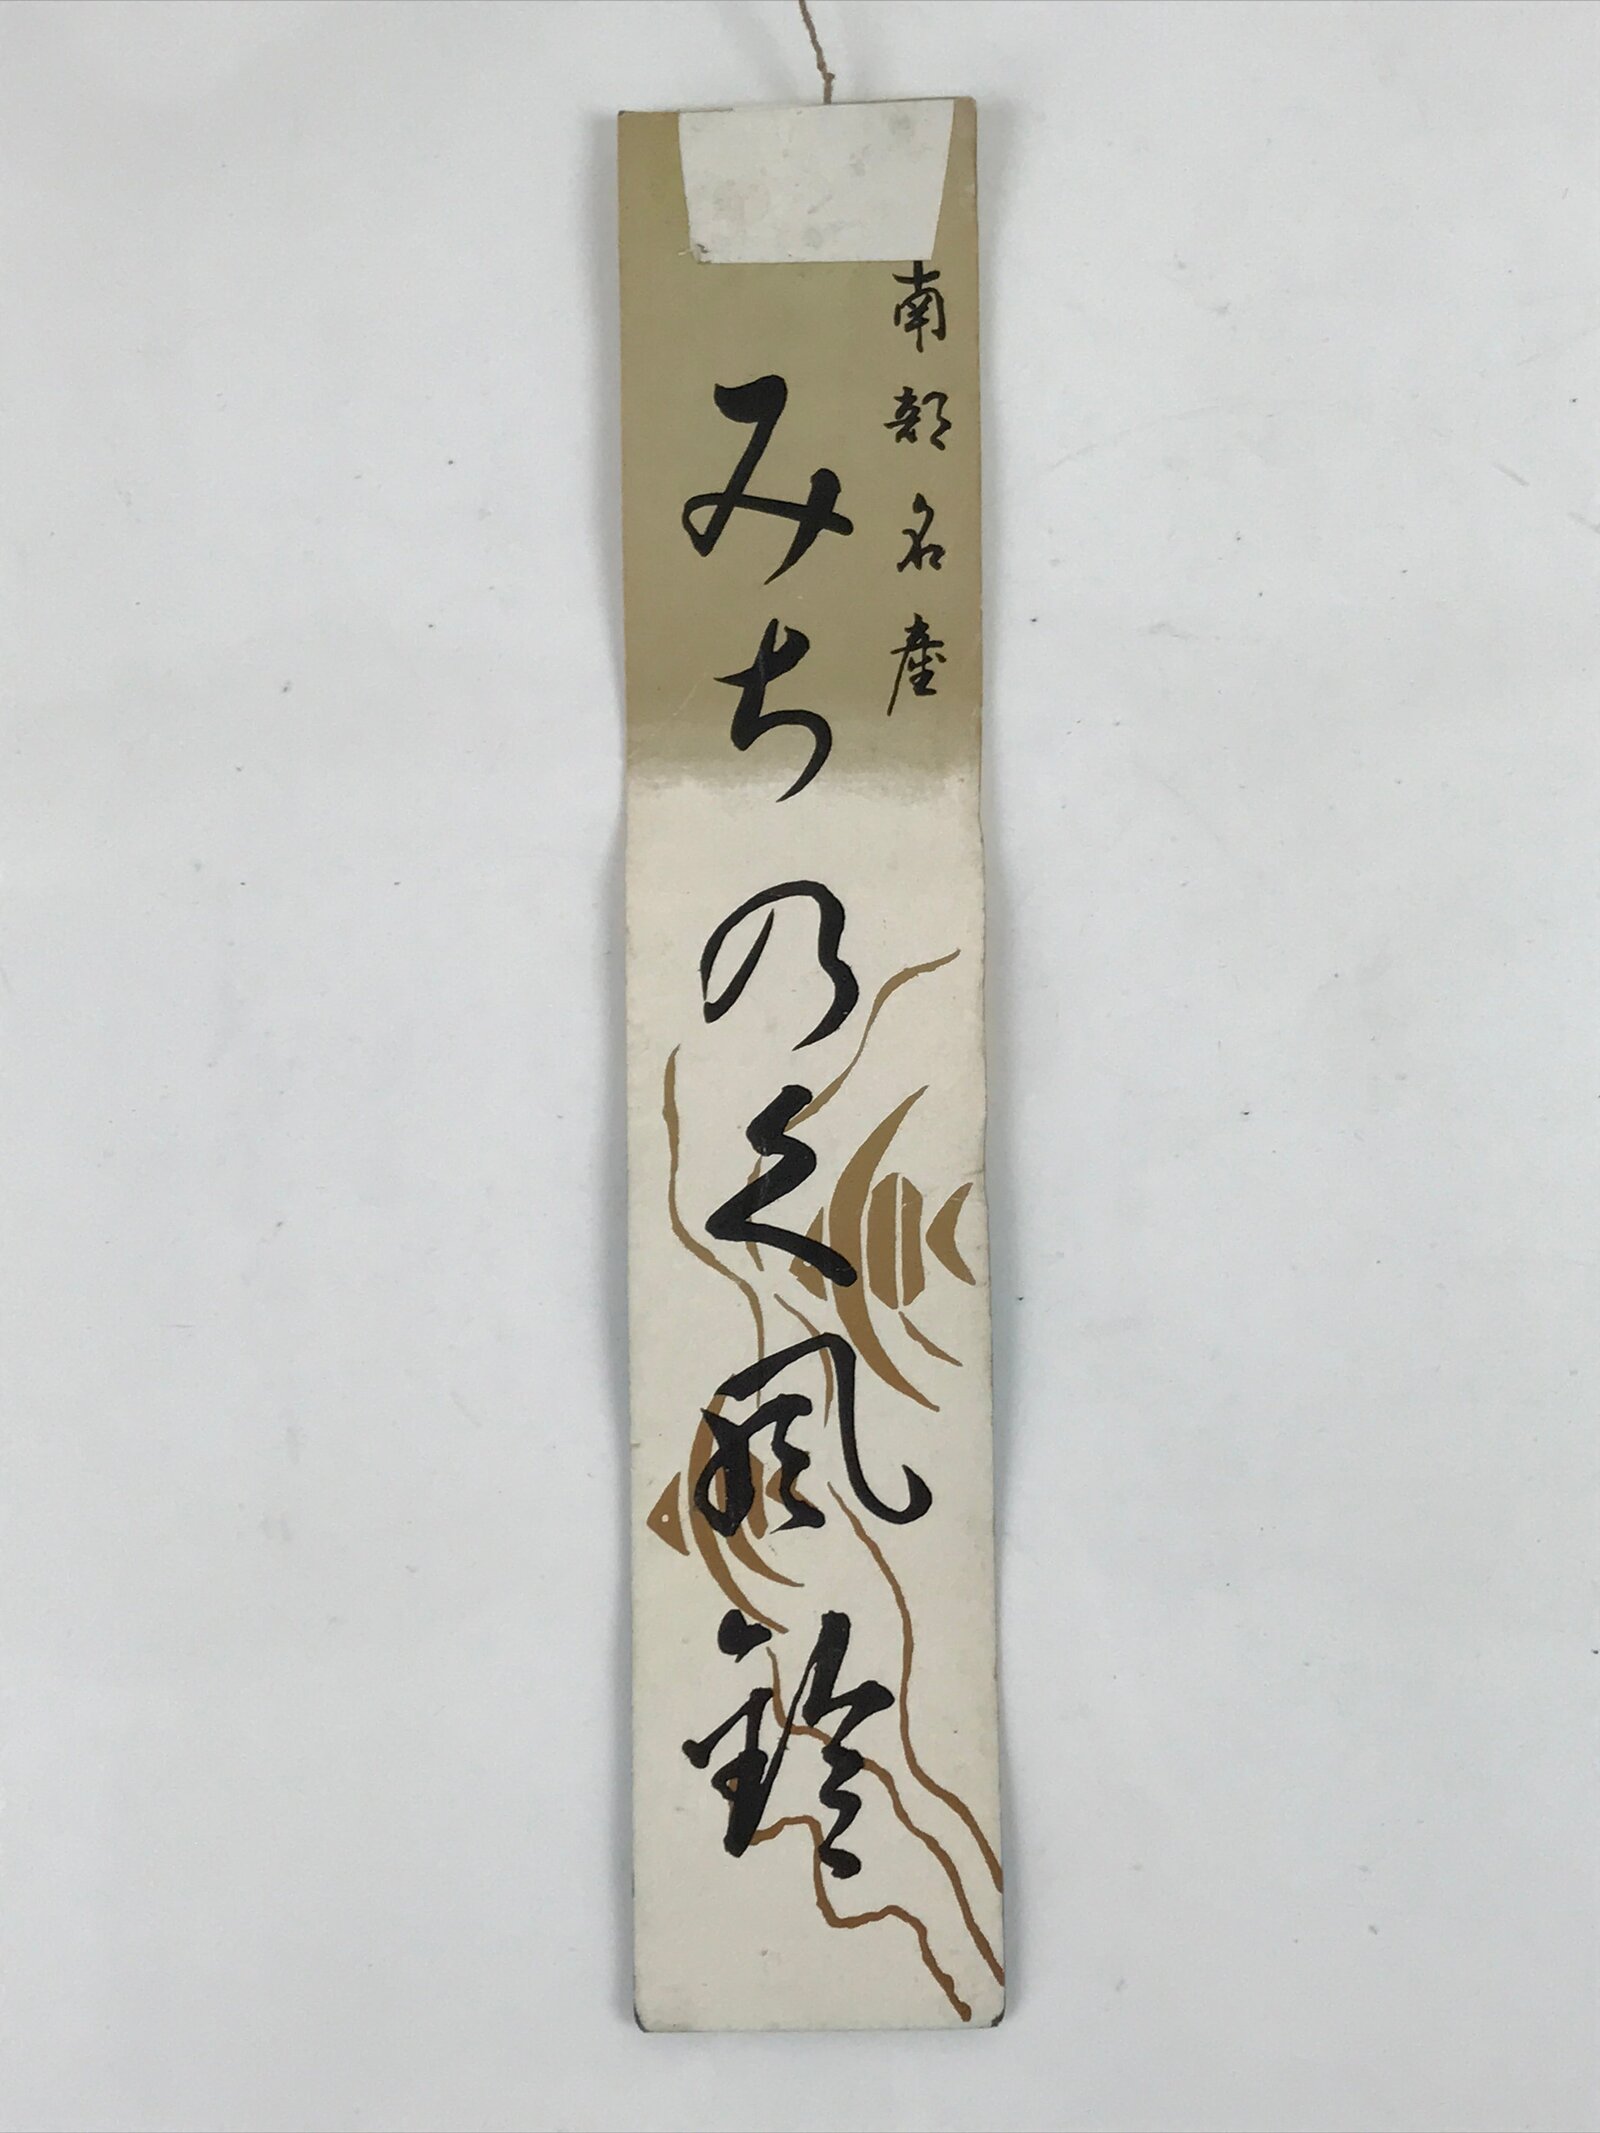 南部名産
みちのく風鈴